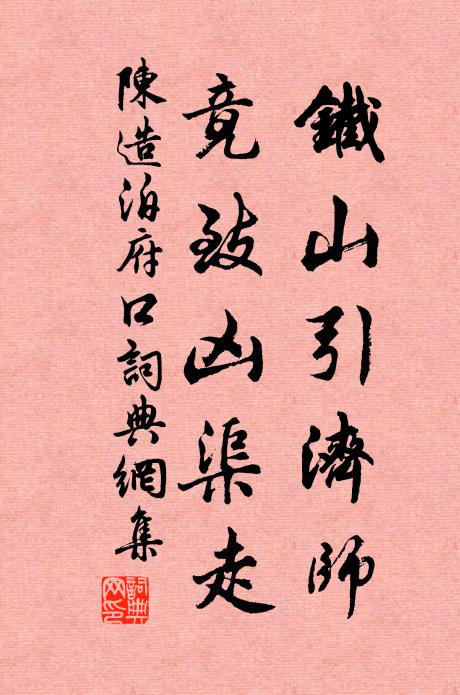 鐵山引濟師
竟致凶渠走
陳造泊府口詞典網集
詞典網印